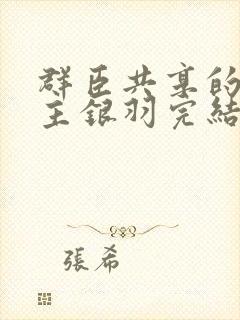 群臣共享的
主銀羽完結
張希